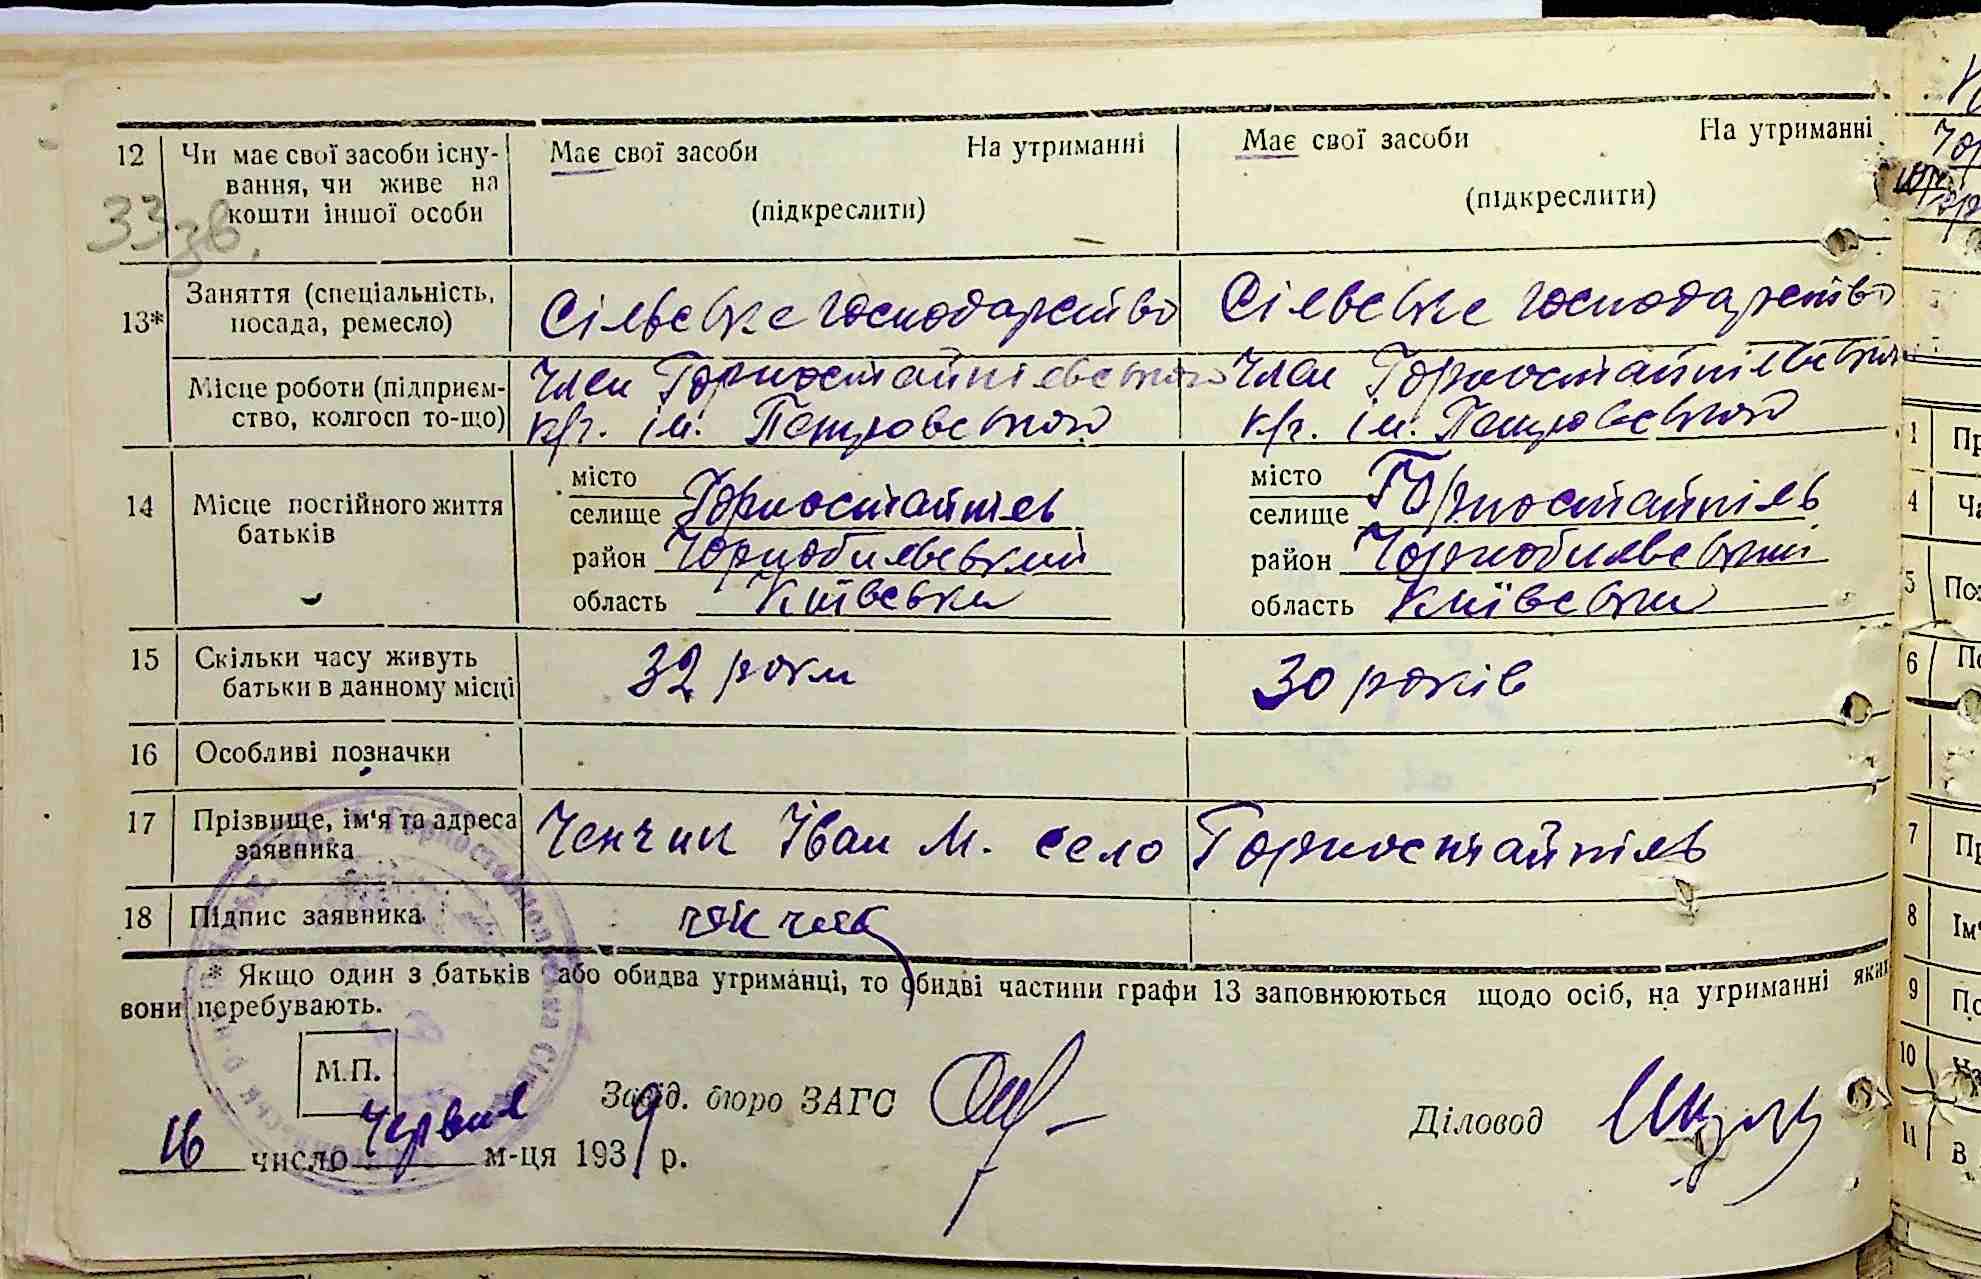 12 Чи має свої засоби існу- Має свої засоби На утриманні Має свої засоби На утриманні
вання, чи живе на
кошти іншої особи (підкреслити) (підкреслити)
33 зв.
13* Заняття (спеціальність, посада, ремесло) Сільське господарство Сільське господарство
Місце роботи (підприєм- Член Горностайпільського Член Горностайпільського
ство, колгосп то-що) к/г. ім. Петровського к/г. ім. Петровського
14 Місце постійного життя батьків
місто місто
селище Горностайпіль селище Горностайпіль
район Чорнобильський район Чорнобильський
область Київська область Київська
15 Скільки часу живуть 32 роки 30 років
батьки в данному місці
16 Особливі позначки
17 Прізвище, ім'я та адреса Ченчик Іван М. село Горностайпіль
заявника
18 Підпис заявника
* Якщо один з батьків або обидва утриманці, то обидві частини графи 13 заповнюються щодо осіб, на утриманні яких
вони перебувають.
М.П.
Завід. бюро ЗАГС Діловод
16 число червня м-ця 1939 р.